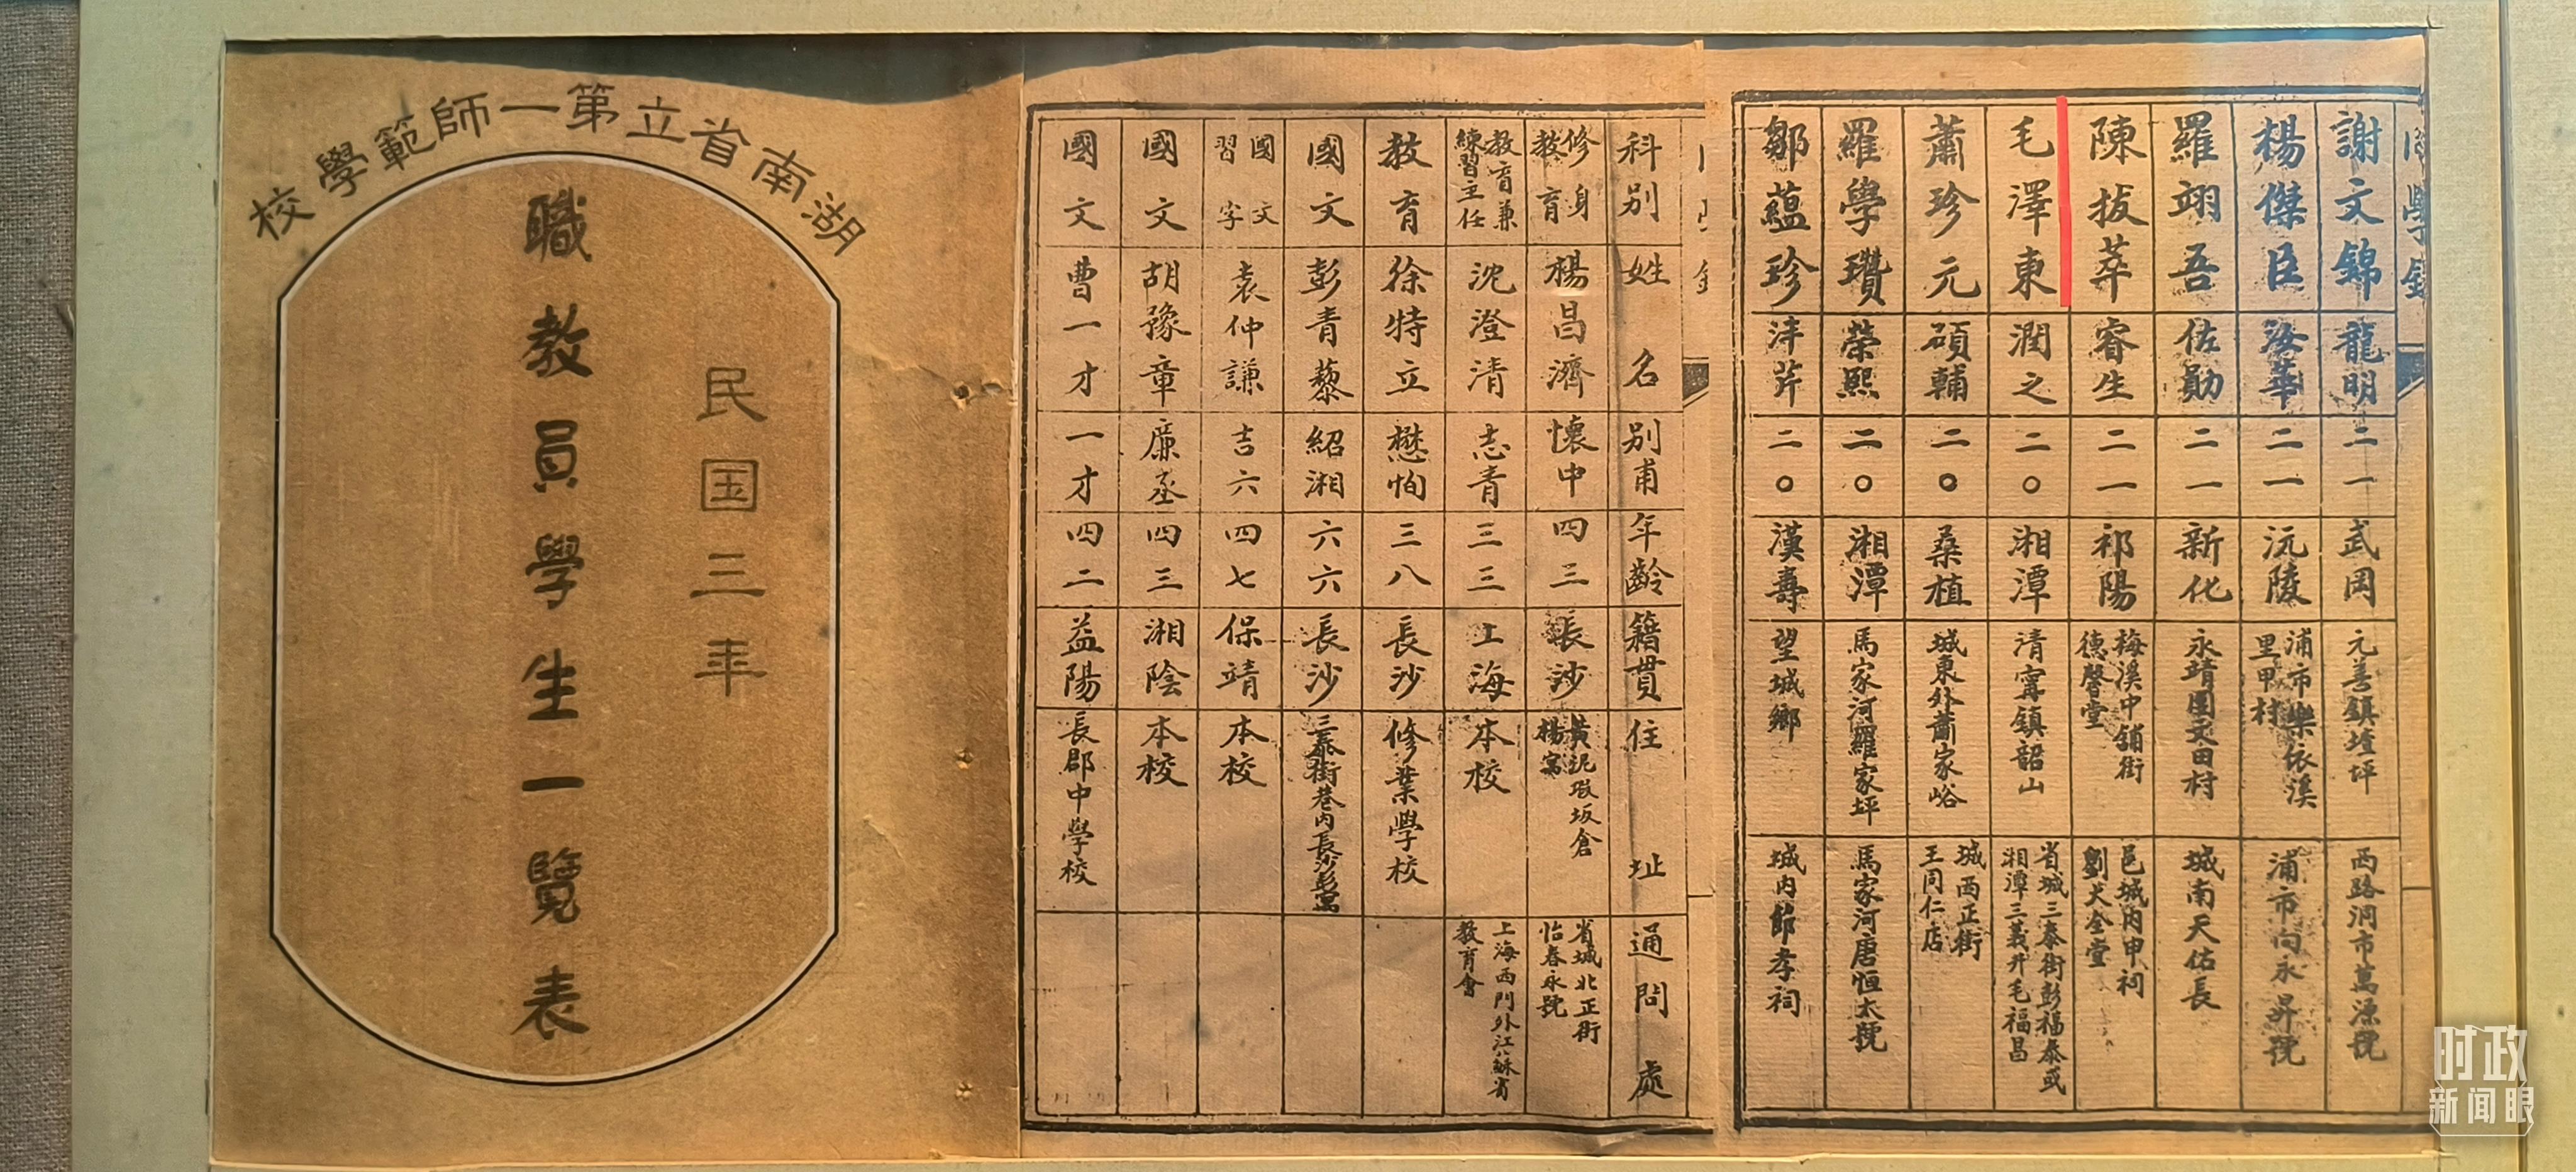 湖南省立第一師範學校
民国三年
職教員學生一覽表
科别 姓名 别甫 年齡 籍貫 住址 通問處
修身教育 楊昌濟 懷中 四三 長沙 黃泥塅坂倉楊寓 省城北正街怡春永號
教育兼練習主任 沈澄清 志青 三三 上海 本校 上海西門外江蘇省教育會
教育 徐特立 懋恂 三八 長沙 修業學校
國文 彭青藜 紹湘 六六 長沙 三泰街巷内長沙彭寓
國文習字 袁仲謙 吉六 四七 保靖 本校
國文 胡豫章 廉丞 四三 湘陰 本校
國文 曹一才 一才 四二 益陽 長郡中學校
同學錄
謝文錦 龍明 二一 武岡 元善鎮堉坪 西路洞市萬源號
楊傑臣 海華 二一 沅陵 浦市樂依溪里甲村 浦市向永昇號
羅翊吾 佐勛 二一 新化 永靖團文田村 城南天佑長
陳拔萃 睿生 二一 祁陽 梅溪中舖街德馨堂 邑城内申祠劉大全堂
毛澤東 潤之 二〇 湘潭 清寗鎮韶山 省城三泰街彭福泰或湘潭三義升毛福昌
蕭珍元 碩輔 二〇 桑植 城東外蕭家峪 城西正街王同仁店
羅學瓚 榮熙 二〇 湘潭 馬家河羅家坪 馬家河唐恒太號
鄒蘊珍 泮芹 二〇 漢壽 望城鄉 城内節孝祠
时政
新闻眼